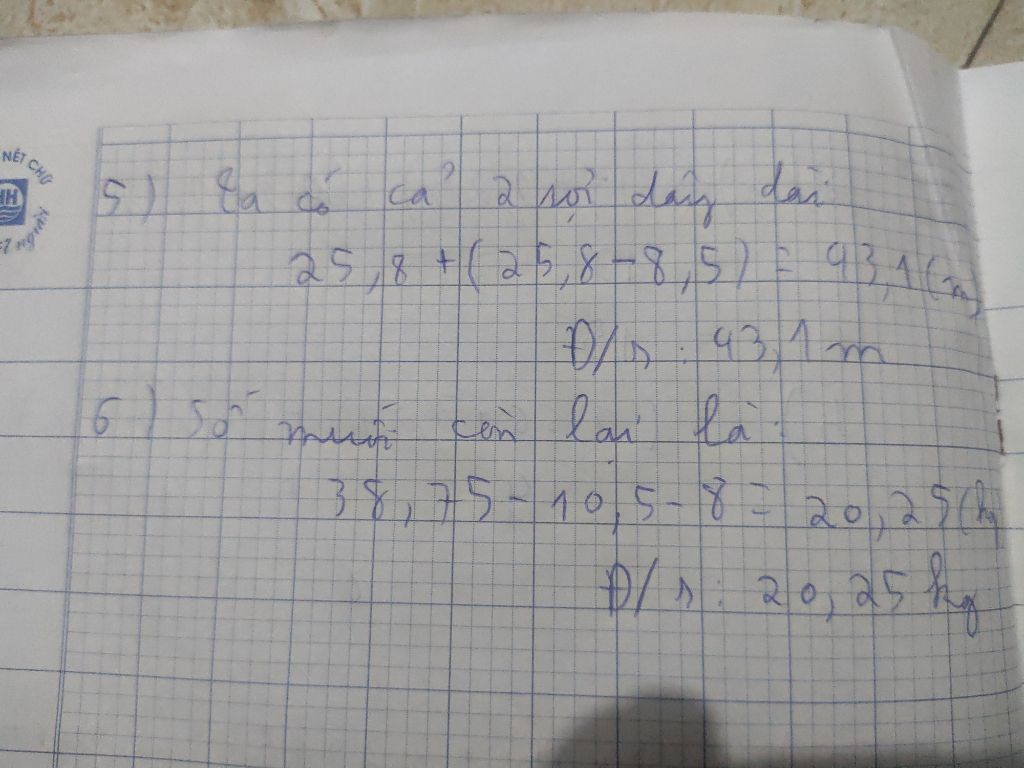 NÉT CHỮ
5) Ta có cả 2 sợi dây dài:
25,8 + (25,8 - 8,5) = 43,1 (m)
Đ/s : 43,1 m
6) Số muối còn lại là:
38,75 - 10,5 - 8 = 20,25 (kg)
Đ/s : 20,25 kg